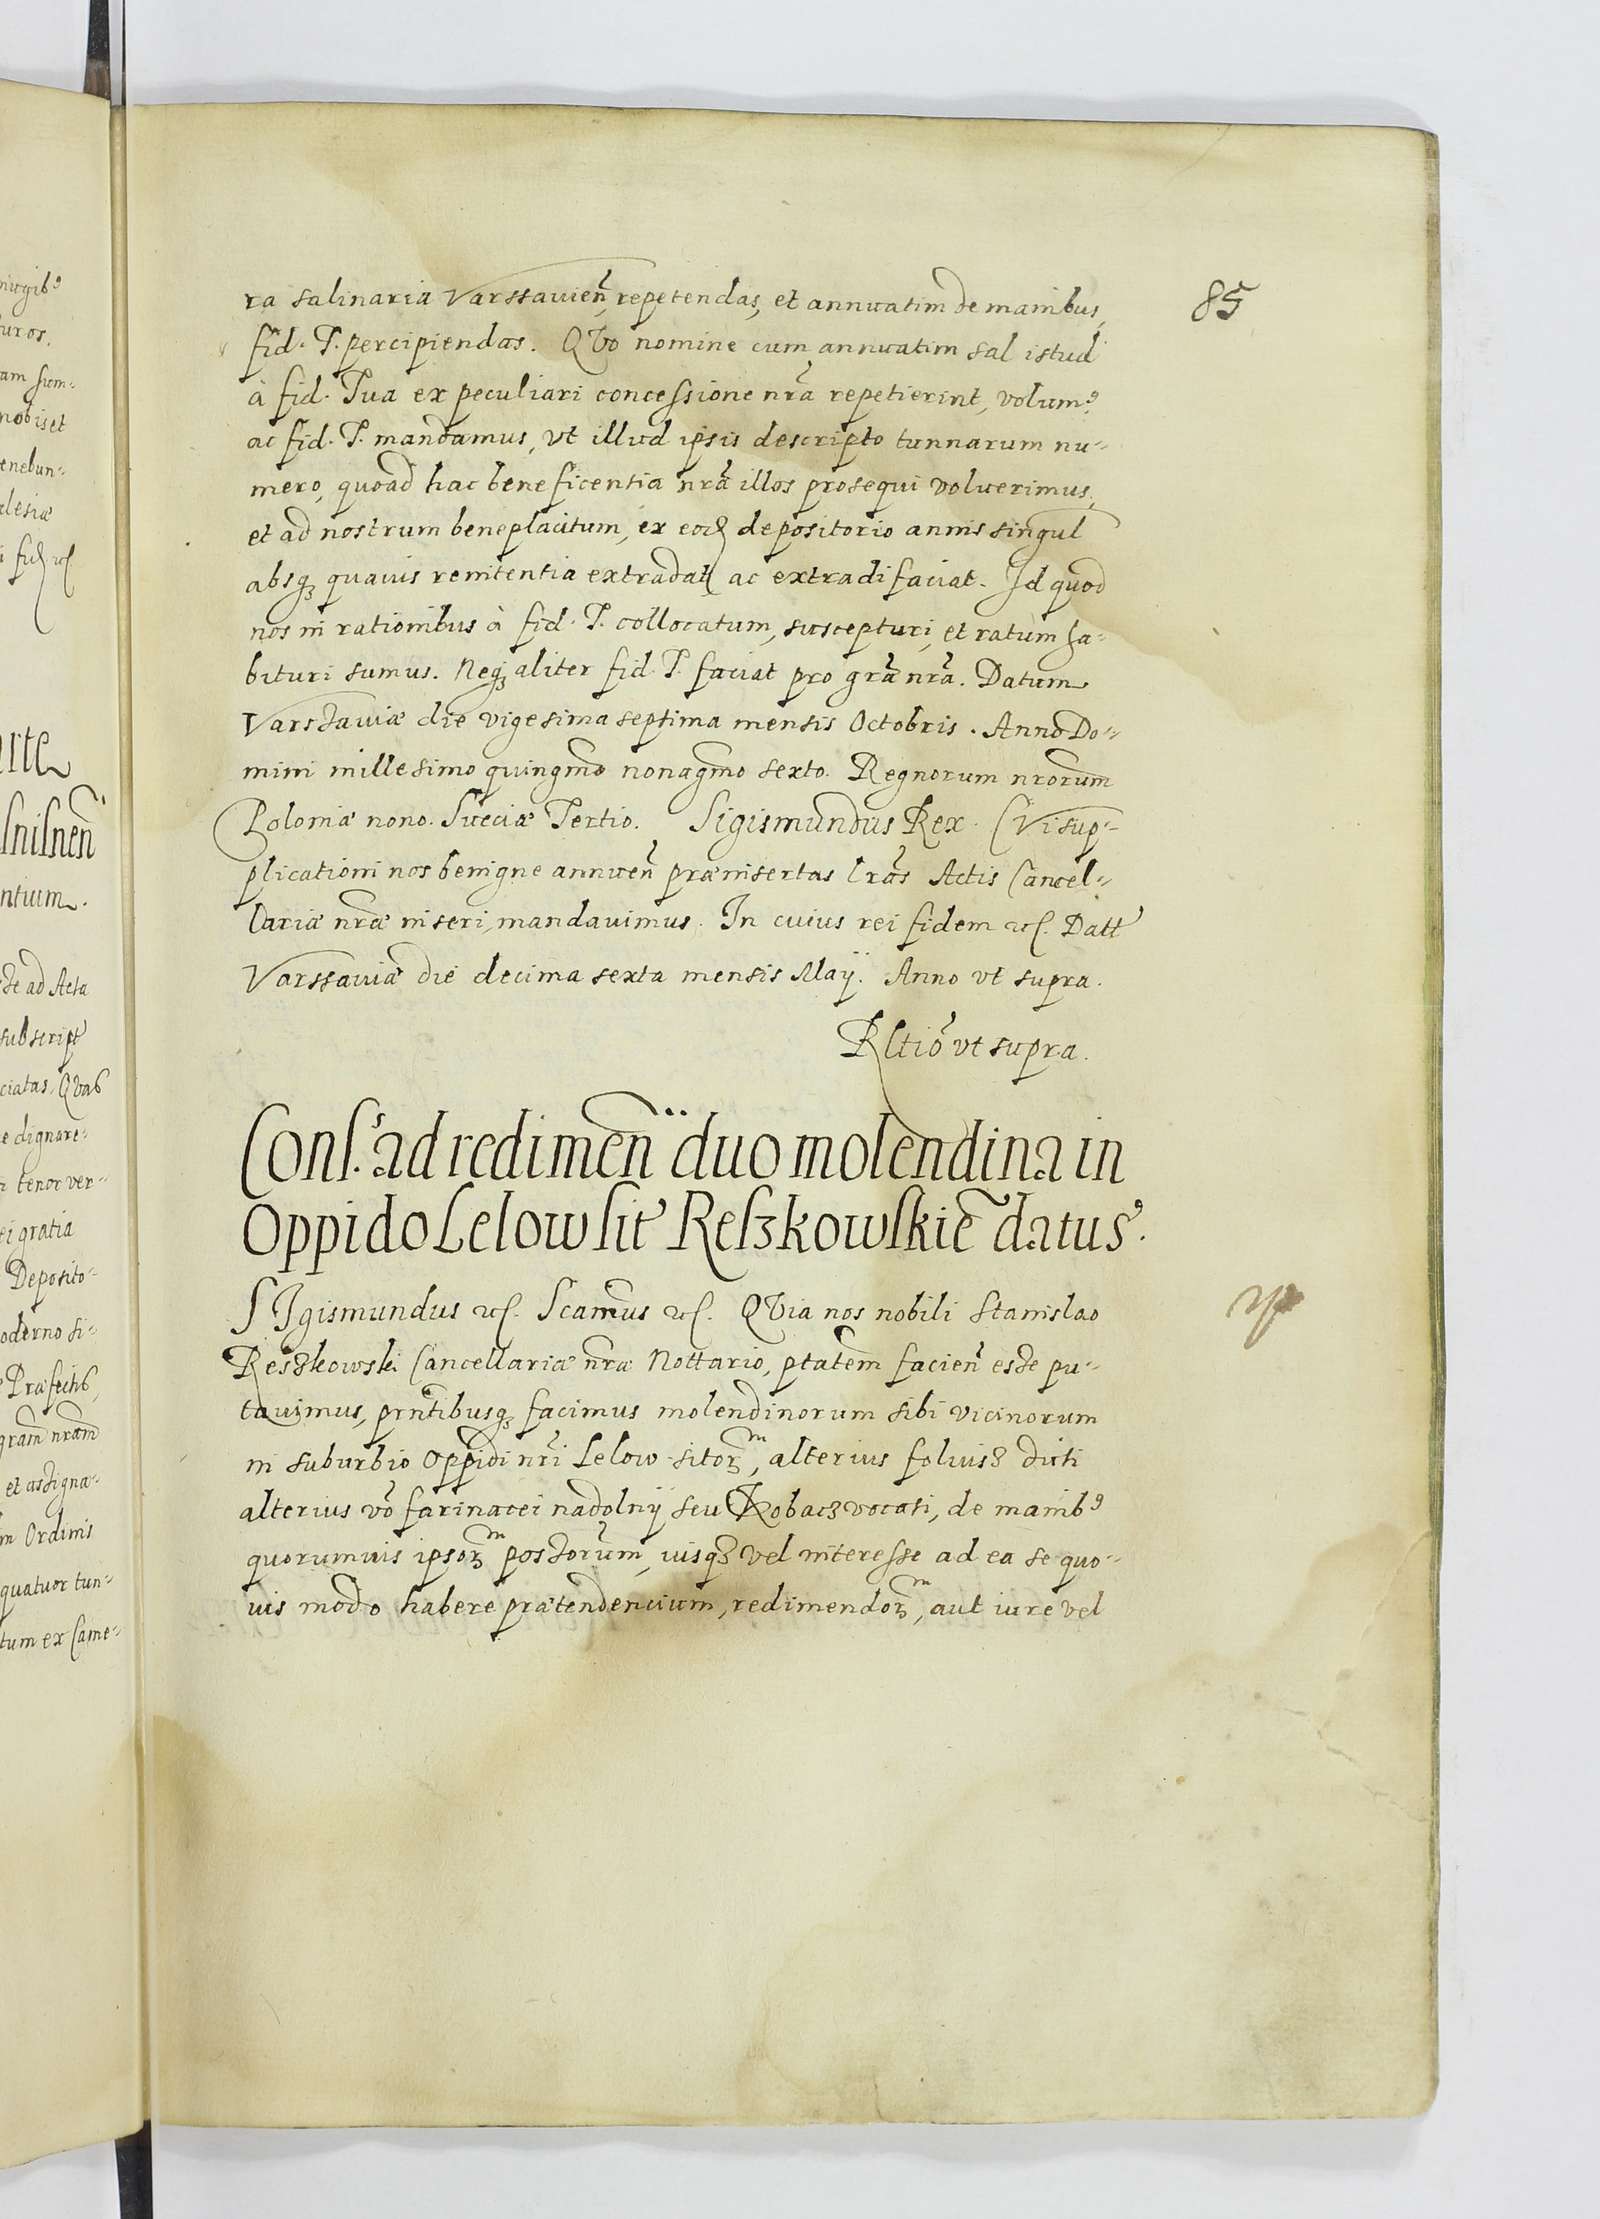 85
ra salinaria Varssavieñ, repetendas, et annuatim de manibus,
fid. T. percipiendas. QVo nomine cum annuatim sal istud
à fid. Tua ex peculiari concessione nrã repetierint, volumꝰ
ac fid. T. mandamus, vt illud ipsis descripto tunnarum nu-
mero, quoad hac beneficentia nrã illos prosequi voluerimus,
et ad nostrum beneplacitum, ex eod depositorio annis singul
absqꝫ quavis renitentia extradat, ac extradi faciat. Id quod
nos in rationibus à fid. T. collocatum, suscepturi, et ratum ha-
bituri sumus. Neqꝫ aliter fid. T. faciat pro grã nrã. Datum
Varssaviæ die vigesima septima mensis Octobris. Anno Do-
mini millesimo quingmo nonagmo sexto. Regnorum nrorum
Poloniæ nono. Sueciæ Tertio. Sigismundus Rex. Cui sup-
plicationi nos benigne annuen̄ præinsertas lrãs Actis Cancel-
lariæ nræ inseri, mandavimus. In cuius rei fidem etc. Datt
Varssaviæ die decima sexta mensis Maij. Anno vt supra.
Rltio vt supra.
Cons. ad redimen̄ duo molendina in
Oppido Lelow sit Reszkowskiẽ datus.
SIgismundus etc. Scamus etc. QVia nos nobili Stanislao
Reszkowski Cancellariæ nræ Nottario, ptatem facien̄ esse pu-
tavimus, prntibusqꝫ facimus molendinorum sibi vicinorum
in suburbio Oppidi nri Lelow sitorꝫm, alterius folusz dicti
alterius vo farinacei nadolnij seu Robacz vocati, de manibꝰ
quorumvis ipsorꝫm possorum, iusqꝫ vel interesse ad ea se quo-
vis modo habere prætendencium, redimendorꝫm, aut iure vel